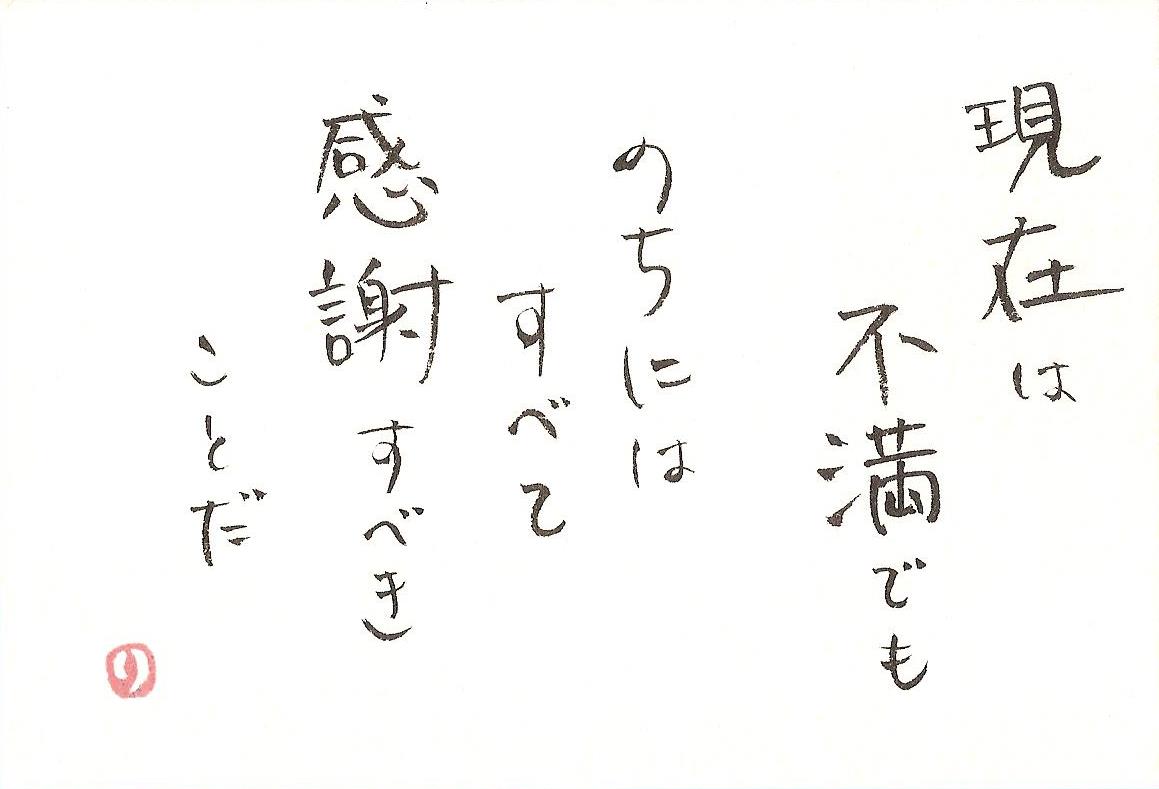 現在は
不満でも
のちには
すべて
感謝すべき
ことだ
の